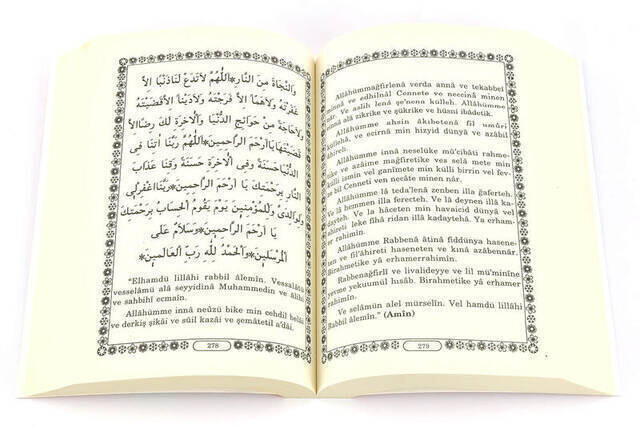 وَالنَّجَاةَ مِنَ النَّارِ*اَللّٰهُمَّ لَاتَدَعْ لَنَاذَنْبًا اِلاَّ
غَفَرْتَهُ وَلَاهَمًّا اِلاَّ فَرَّجْتَهُ وَلَادَيْنًا اِلاَّقَضَيْتَهُ
وَلَاحَاجَةً مِنْ حَوَائِجِ الدُّنْيَا وَالْاٰخِرَةِ لَكَ رِضًااِلاَّ
قَضَيْتَهَايَااَرْحَمَ الرَّاحِمِينَ*اَللّٰهُمَّ رَبَّنَا اٰتِنَا فِى
الدُّنْيَاحَسَنَةً وَفِى الْاٰخِرَةِ حَسَنَةً وَقِنَا عَذَابَ
النَّارِ بِرَحْمَتِكَ يَا اَرْحَمَ الرَّاحِمِينَ*رَبَّنَااغْفِرْلِى
وَلِوَالِدَىَّ وَلِلْمُؤْمِنِينَ يَوْمَ يَقُومُ الْحِسَابُ بِرَحْمَتِكَ
يَا اَرْحَمَ الرَّاحِمِينَ*وَسَلَامٌ عَلَى
الْمُرْسَلِينَ*وَالْحَمْدُ لِلّٰهِ رَبِّ الْعَالَمِينَ*
"Elhamdü lillâhi rabbil âlemîn. Vessalâtü
vesselâmü alâ seyyidinâ Muhammedin ve âlihî
ve sahbihî ecmaîn.
Allâhümme innâ neûzü bike min cehdil belâi
ve derkiş şikâi ve sûil kazâi ve şemâtetil a'dâi.
278
Allâhümmağfirlenâ verda annâ ve tekabbel
minnâ ve edhilnâl Cennete ve neccinâ minen
nâr. Ve aslih lenâ şe'nenâ külleh. Allâhümme
einnâ alâ zikrike ve şükrike ve hüsni ibâdetik.
Allâhümme ahsin âkıbetenâ fil umûri
külliha, ve ecirnâ min hizyid dünyâ ve azâbil
âhireh.
Allâhümme innâ neselüke mü'cibâti rahme-
tike ve azâime mağfiretike ves selâ mete min
külli ismin vel ganîmete min külli birrin vel fev-
ze bil Cenneti ven necâte minen nâr.
Allâhümme lâ teda'lenâ zenben illa ğaferteh.
Ve lâ hemmen illa ferecteh. Ve lâ deynen illâ ka-
dayteh. Ve lâ hâceten min havaicid dünyâ vel
âhireti leke fîhâ ridan illâ kadayteha. Ya erha-
mer rahimîn.
Allâhümme Rabbenâ âtinâ fiddünya hasene-
ten ve fil'âhireti haseneten ve kınâ azâbennâr.
Birahmetike yâ erhamerrahimîn.
Rabbenâğfirlî ve livalideyye ve lil mü'minîne
yevme yekuumül hısâb. Birahmetike yâ erhamer
râhimîn.
Ve selâmün alel mürselîn. Vel hamdü lillâhi
Rabbil âlemîn." (Amîn)
279